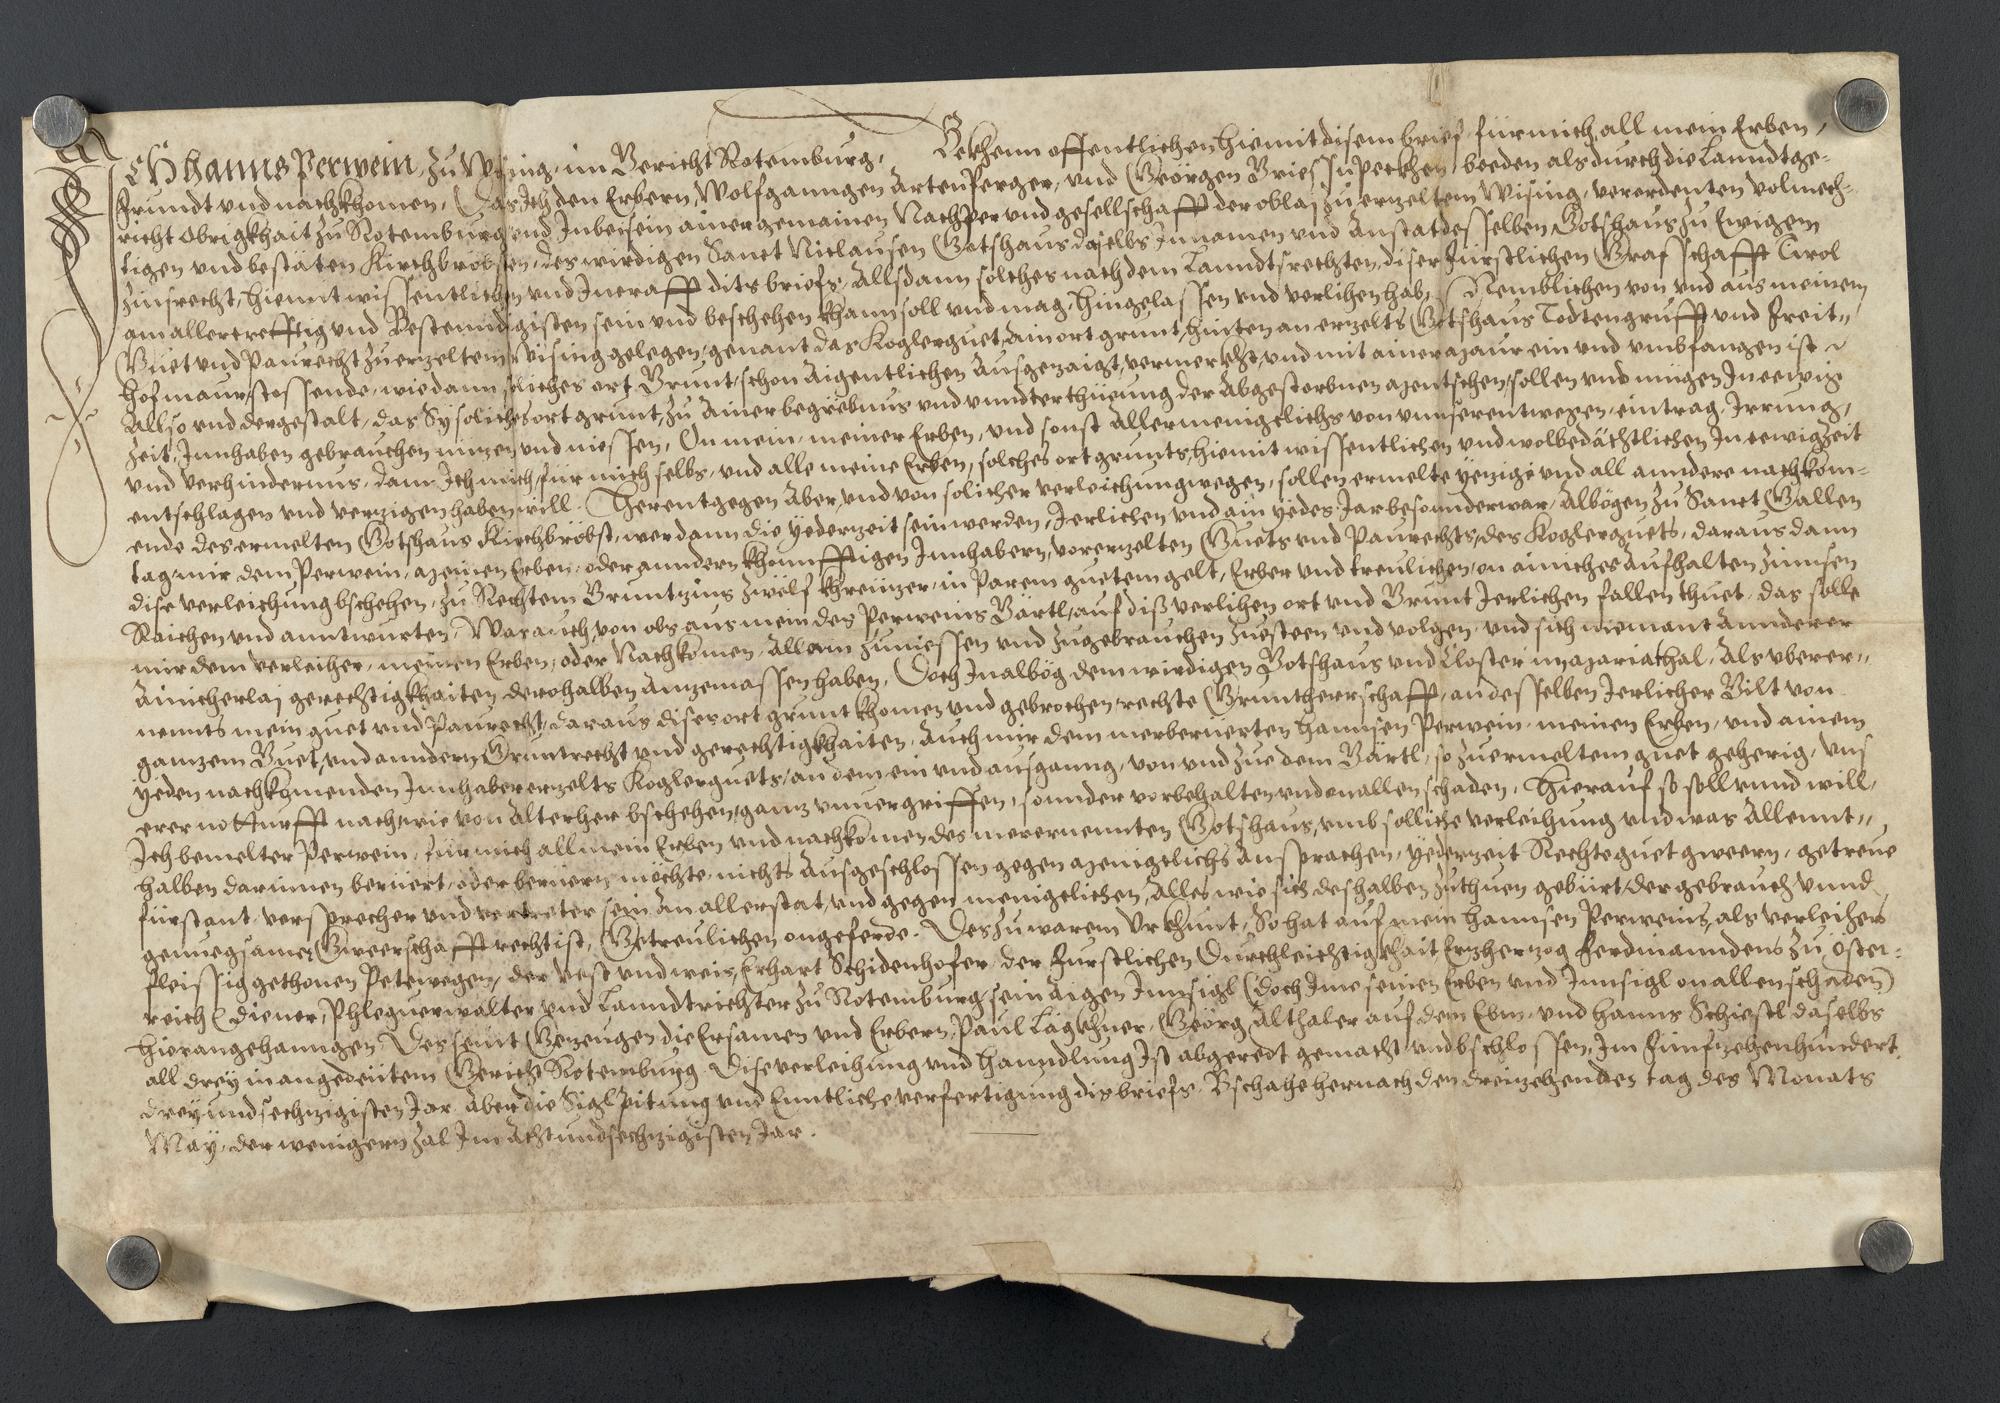 Ich Hanns Perwein, zu Wising, im Gericht Rotemburg, Bekhenn offentlichen hiemit disem brief, für mich all mein Erben,
Frundt vnd nachkhomen, Das Ich den Erbern, Wolfganngen Artenperger, vnd Geörgen Bries zu Peckhen, beeden als durch die Lanndtge-
richt Obrigkhait zu Rotemburg vnd Inbeisein ainer gemainen Nachper vnd gesellschafft der oblaj zu erzeltem Wising, verordenten volmech-
tigen vnd bestäten Kirchbröbsten, des wirdigen Sanct Niclausen Gotshaus daselbs Innamen vnd Anstat desselben Gotshaus zu Ewigem
Zinsrecht, hiemit wissentlichen vnd Incrafft dits briefs, Allsdann solches nach dem Lanndtsrechten, diser Fürstlichen Grafschafft Tirol
am allercrefftig vnd Bestenndigisten sein vnd beschehen khann soll vnd mag, hingelassen vnd verlihen hab, Nemblichen von vnd aus meinem
Guet vnd Paurecht zu erzeltem Wising gelegen, genant das Koglerguet, Ain ort grunt, hinten an erzelts Gotshaus Todtengrufft vnd Freit-
hofmaur stossende, wie dann soliches ort Grunt, schon Aigentlichen Ausgezaigt, vermerckht, vnd mit ainer Maur ein vnd vmbfangen ist
Allso vnd dergestalt, das Sy soliches ort grunt, zu Ainer begrebnus vnd vnndterthüeung der Abgestorbnen Mentschen, sollen vnd mügen In eewig
Zeit, Innhaben gebrauchen nuzen vnd niessen, On mein, meiner Erben, vnd sonst Allermenigelichs von vnnserentwegen, eintrag, Irrung,
vnd verhindernus, dann Ich mich, für mich selbs, vnd alle meine Erben, solches ort grunts, hiemit wissentlichen vnd wolbedächtlichen In eewigzeit
entschlagen vnd verzigen haben will. Herentgegen Aber, vnd von solicher verleichung wegen, sollen ermelte yezige vnd all anndere nachkom-
ende des ermelten Gotshaus Kirchbröbst, wer dann die yederzeit sein werden, Jerlichen vnd ain yedes Jar besonnderwar, Albögen zu Sanct Gallen
tag, mir dem Perwein, Meinen Erben, oder anndern khonnfftigen Innhabern, vorerzelten Guets vnd Paurechts, des Koglerguets, daraus dann
dise verleichung bschehen, zu Rechtem Gruntzins Zwelf khreüzer, in Parem guetem gelt, Erber vnd treulichen, on ainiches Aufhalten Zinnsen
Raichen vnd anntwurten, Was auch von obs aus mein des Perweins Gärtl, auf diß verlihen ort vnd Grunt Jerlichen fallen thuet, das solle
mir dem verleiher, meinen Erben, oder Nachkomen, Allain zuniessen vnd zugebrauchen Zuesteen vnd volgen, vnd sich niemant Annderer
Ainicherlaj gerechtigkhaiten derohalben Anzemassen haben, Doch Inalbög dem wirdigen Gotshaus vnd Closter Mariathal, Als oberer-
nennts mein guet vnd Paurecht, daraus dises ort grunt khomen vnd gebrochen, rechte Gruntherrschafft, an desselben Jerlicher Gilt von
ganzem Guet, vnd anndern Gruntrecht vnd gerechtigkhaiten, Auch mir dem merberuerten Hannsen Perwein, meinen Erben, vnd ainem
yeden nachkomenden Innhaber erzelts Koglerguets, an dem, ein vnd ausganng, von vnd zue dem Gärtl, so zu ermeltem guet geherig, vns
erer notturfft nach, wie von Alter her bschehen, ganz vnuergriffen, sonnder vorbehalten vnd on allen schaden. Hierauf so soll vnnd will,
Ich bemelter Perwein, für mich all mein Erben vnd nachkomen des merernennten Gotshaus, vmb solliche verleihung vnd was Allennt-
halben darinnen berüert, oder berüern möchte, nichts Ausgeschlossen gegen Menigelichs Ansprachen, yederzeit Rechte guet gweern, getreue
fürstant, versprecher vnd vertreter sein An aller stat, vnd gegen menigelichen, Alles wie sich deshalben zuthuen gebürt, der gebrauch vnnd
genuegsamer Gweerschafft recht ist, Getreulichen ongeferde. Des zu warem Vrkhunt, So hat auf mein Hannsen Perweins, als verleihers
fleissig gethonen Petwegen, der vest vnd weis, Erhart Schidenhofer, der Fürstlichen Durchleichtigkhait Erzherzog Ferdinanndens zu Öster-
reich (Diener, Phleguerwalter vnd Lanndtrichter zu Rotemburg, sein Aigen Innsigl (doch Ime seinen Erben vnd Innsigl on allen schaden)
hieran gehanngen. Des seint Gezeugen die Ersamen vnd Erbern, Paul Lägkhner, Geörg Althaler auf dem Ebm, vnd Hanns Schiestl daselbs
all drey in angedeütem Gericht Rotemburg. Dise verleihung vnd hanndlung Ist abgeredt gemacht vnd bschlossen, Im Funfzehenhundert
Drey vnd sechzigisten Jar, Aber die Sigl Pitung vnd Enntliche verfertigung diß briefs, Bschahe hernach den dreizehendes tag des Monats
May, der wenigern Zal Im Acht vnd sechzigisten Jar.